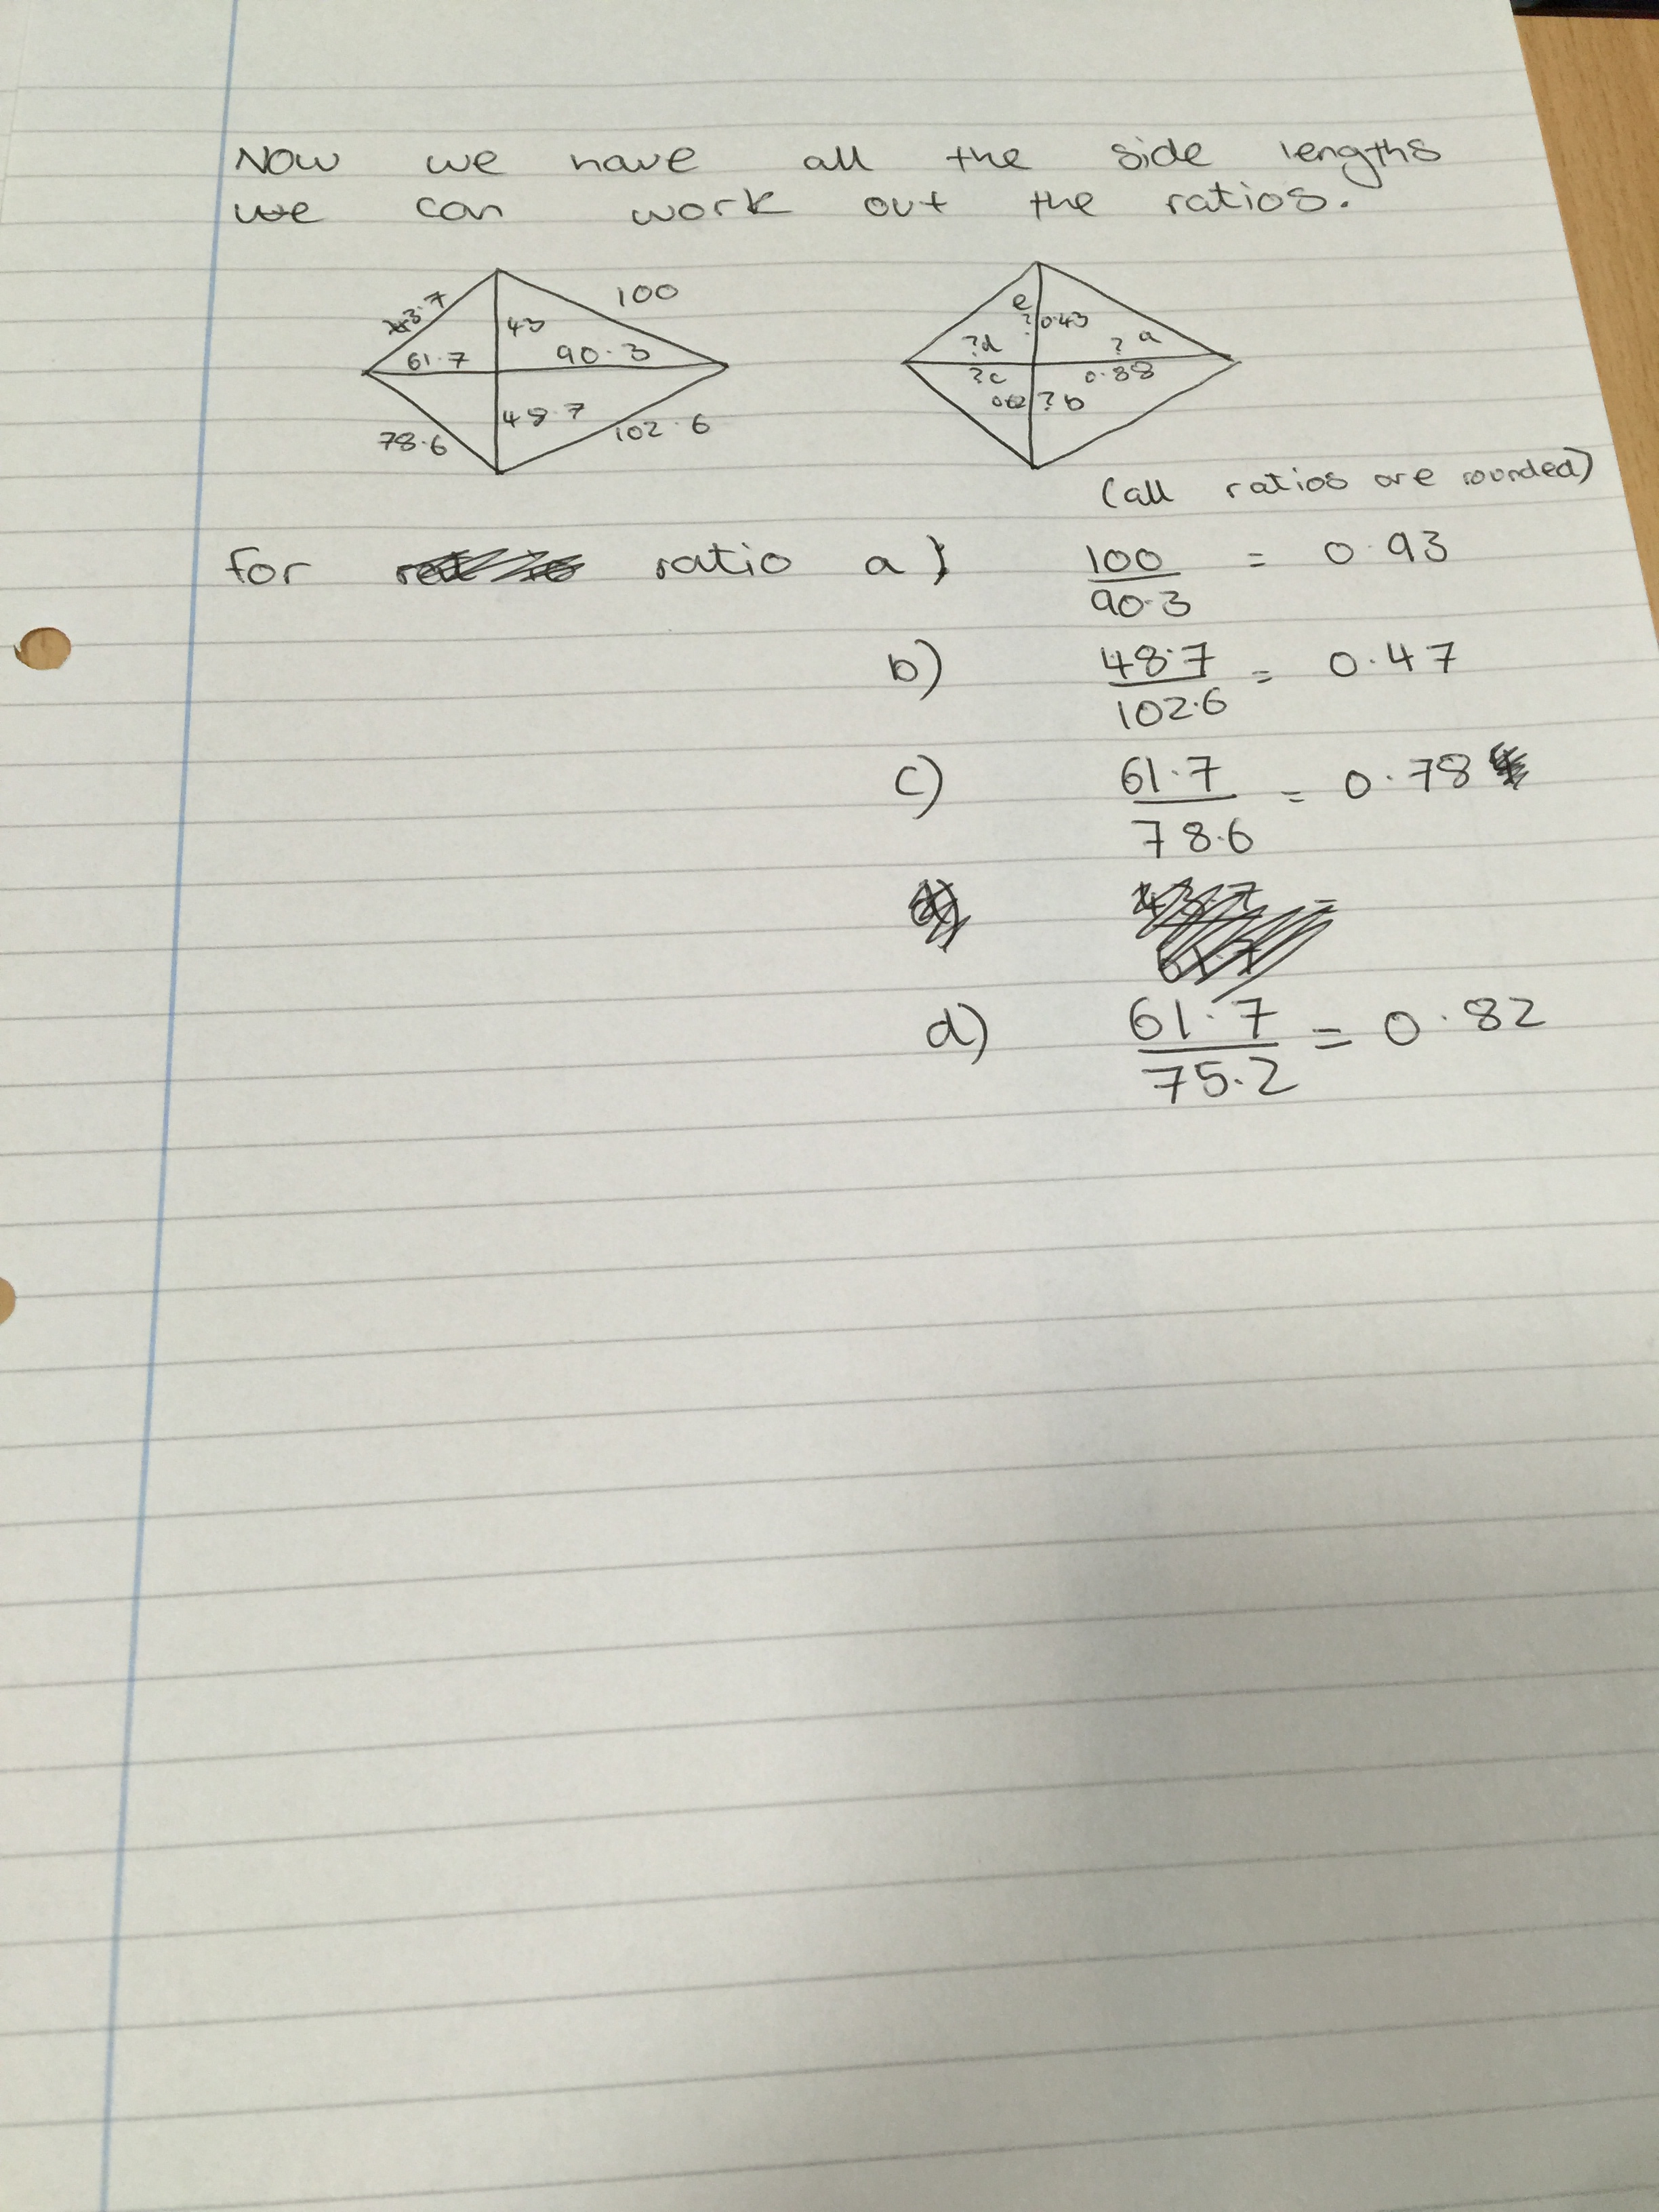 Now we have all the side lengths
we can work out the ratios.
43.7 100
43
61.7 90.3
48.7
78.6 102.6
e
? 0.43
?d ? a
?c 0.88
?b
(all ratios are rounded)
for ratio a) 100 = 0.93
90.3
b) 48.7 = 0.47
102.6
c) 61.7 = 0.78
78.6
d) 61.7 = 0.82
75.2